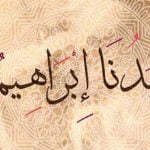 سيدنا إِبْرَاهِيم